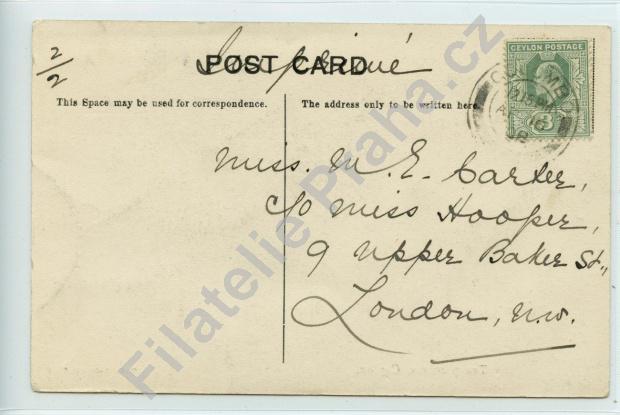 2/2
Imprimé
POST CARD
CEYLON POSTAGE
This Space may be used for correspondence.
The address only to be written here.
Miss. M. E. Carter,
c/o Miss Hooper,
9 Upper Baker St.,
London, N.W.
Filatelie Praha.cz